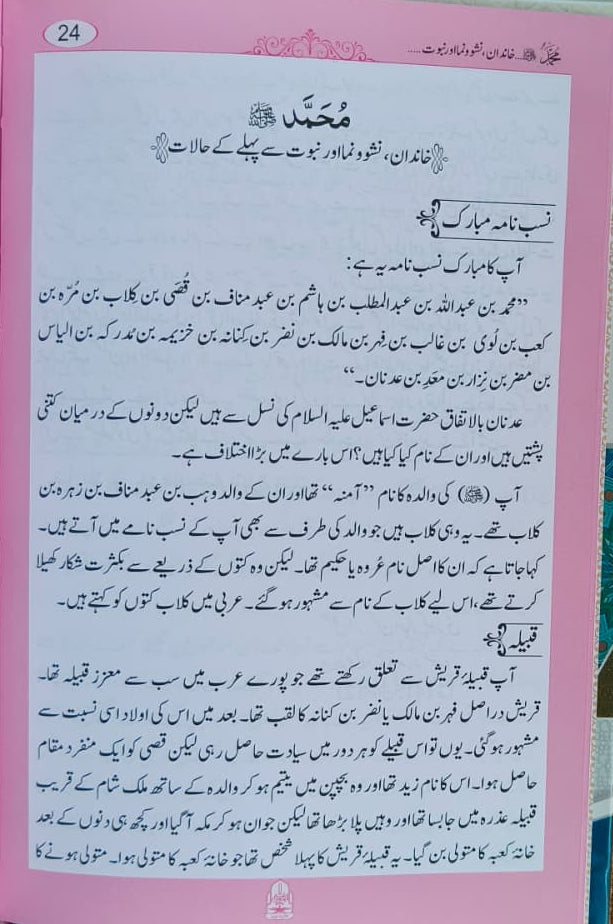 24
محمد ﷺ... خاندان، نشوونما اور نبوت .....
مُحَمَّد ﷺ
خاندان، نشوونما اور نبوت سے پہلے کے حالات
نسب نامہ مبارک
آپ کا مبارک نسب نامہ یہ ہے:
”محمد بن عبداللہ بن عبدالمطلب بن ہاشم بن عبد مناف بن قُصَی بن کِلاب بن مُرّہ بن
کعب بن لُوی بن غالب بن فِہر بن مالک بن نضر بن کِنانہ بن خزیمہ بن مُدرکہ بن الیاس
بن مضر بن نِزار بن معَدِ بن عدنان۔“
عدنان بالاتفاق حضرت اسماعیل علیہ السلام کی نسل سے ہیں لیکن دونوں کے درمیان کتنی
پشتیں ہیں اور ان کے نام کیا کیا ہیں؟ اس بارے میں بڑا اختلاف ہے۔
آپ (ﷺ) کی والدہ کا نام ”آمنہ“ تھا اور ان کے والد وہب بن عبد مناف بن زہرہ بن
کلاب تھے۔ یہ وہی کلاب ہیں جو والد کی طرف سے بھی آپ کے نسب نامے میں آتے ہیں۔
کہا جاتا ہے کہ ان کا اصل نام عُروہ یا حکیم تھا۔ لیکن وہ کتوں کے ذریعے سے بکثرت شکار کھیلا
کرتے تھے، اس لیے کلاب کے نام سے مشہور ہو گئے۔ عربی میں کلاب کتوں کو کہتے ہیں۔
قبیلہ
آپ قبیلۂ قریش سے تعلق رکھتے تھے جو پورے عرب میں سب سے معزز قبیلہ تھا۔
قریش دراصل فہر بن مالک یا نضر بن کنانہ کا لقب تھا۔ بعد میں اس کی اولاد اسی نسبت سے
مشہور ہو گئی۔ یوں تو اس قبیلے کو ہر دور میں سیادت حاصل رہی لیکن قصی کو ایک منفرد مقام
حاصل ہوا۔ اس کا نام زید تھا اور وہ بچپن میں یتیم ہو کر والدہ کے ساتھ ملک شام کے قریب
قبیلہ عذرہ میں جا بسا تھا اور وہیں پلا بڑھا تھا لیکن جوان ہو کر مکہ آگیا اور کچھ ہی دنوں کے بعد
خانۂ کعبہ کا متولی بن گیا۔ یہ قبیلۂ قریش کا پہلا شخص تھا جو خانۂ کعبہ کا متولی ہوا۔ متولی ہونے کا